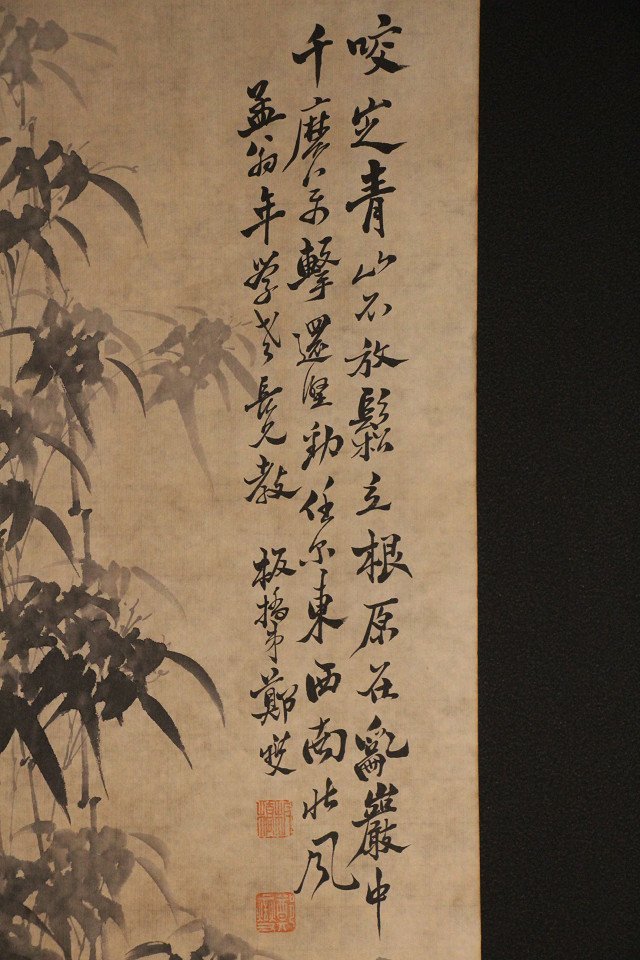 咬定青山不放鬆立根原在亂巖中
千磨万擊還堅勁任尔東西南北風
孟翁年學老長兄教
板橋弟鄭燮